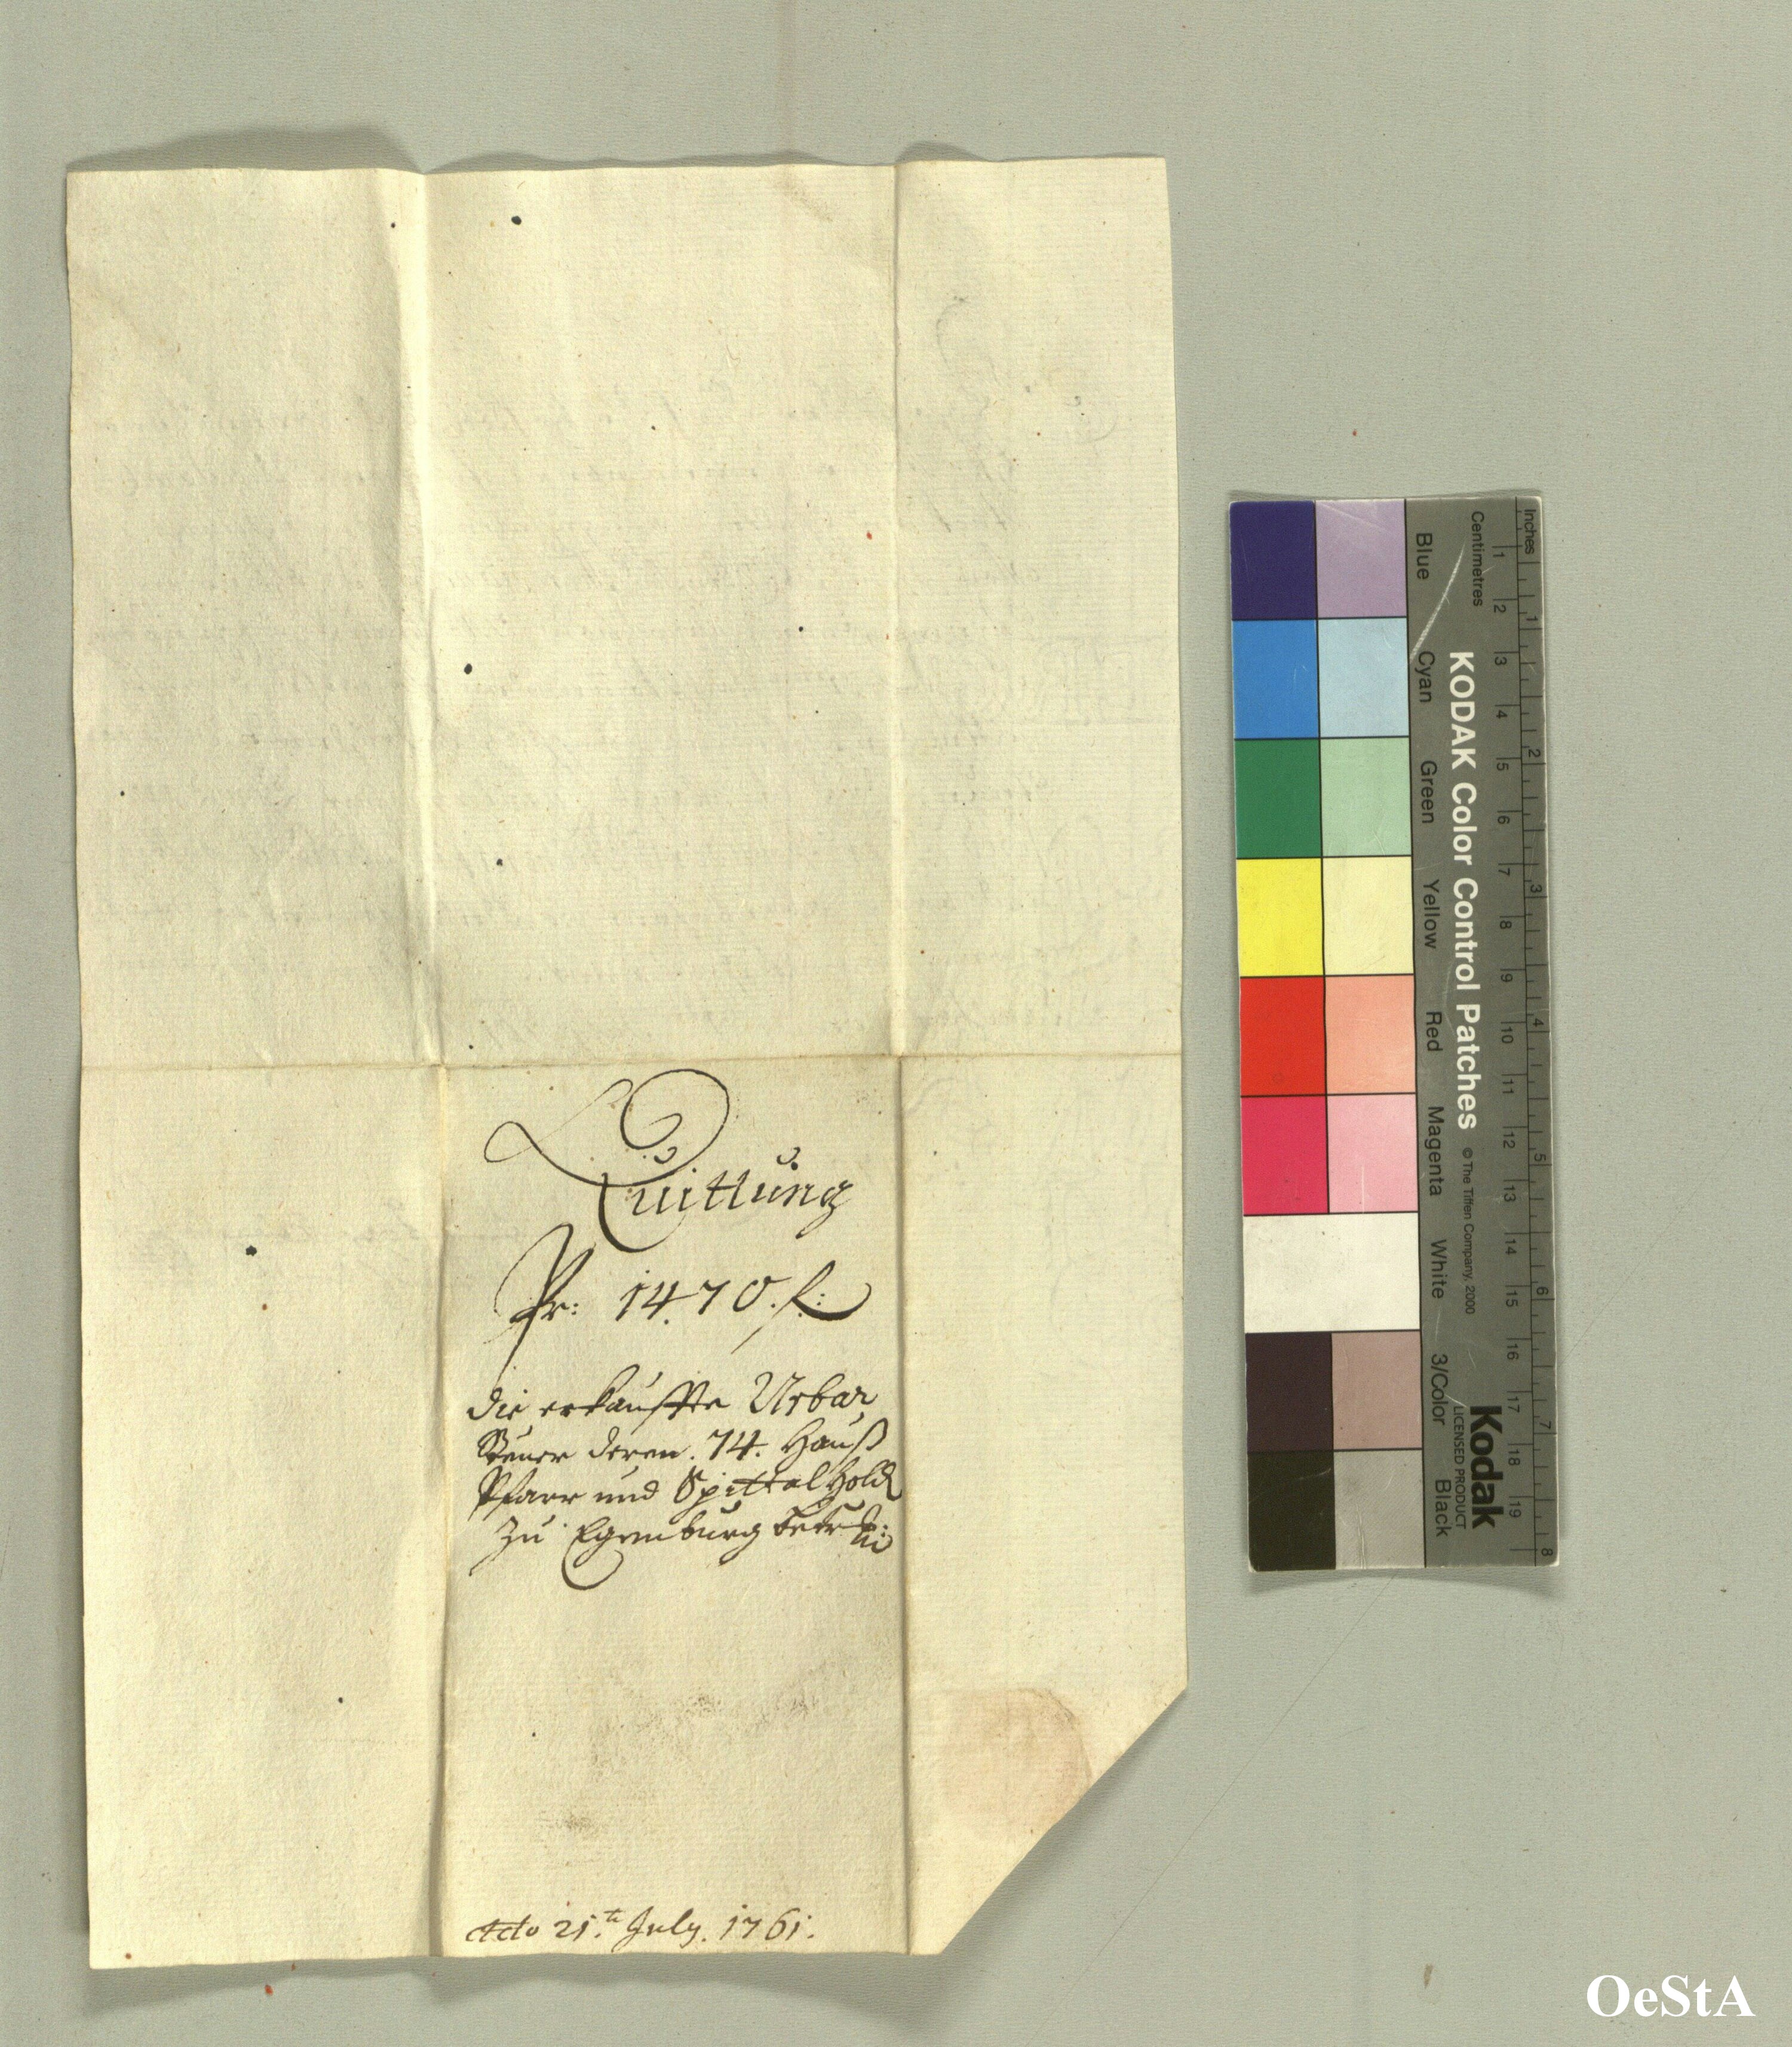 Quittung
Pr: 1470. f:
die erkauffte Urbar
Steuer deren. 74. Hauß
Pfarr und Spittal Hold
zu Egenburg betr:
dto 21.te July. 1761.
Inches
Centimetres
1 2 3 4 5 6 7 8 9 10 11 12 13 14 15 16 17 18 19
1 2 3 4 5 6 7 8
KODAK Color Control Patches
© The Tiffen Company, 2000
Kodak
LICENSED PRODUCT
Blue Cyan Green Yellow Red Magenta White 3/Color Black
OeStA